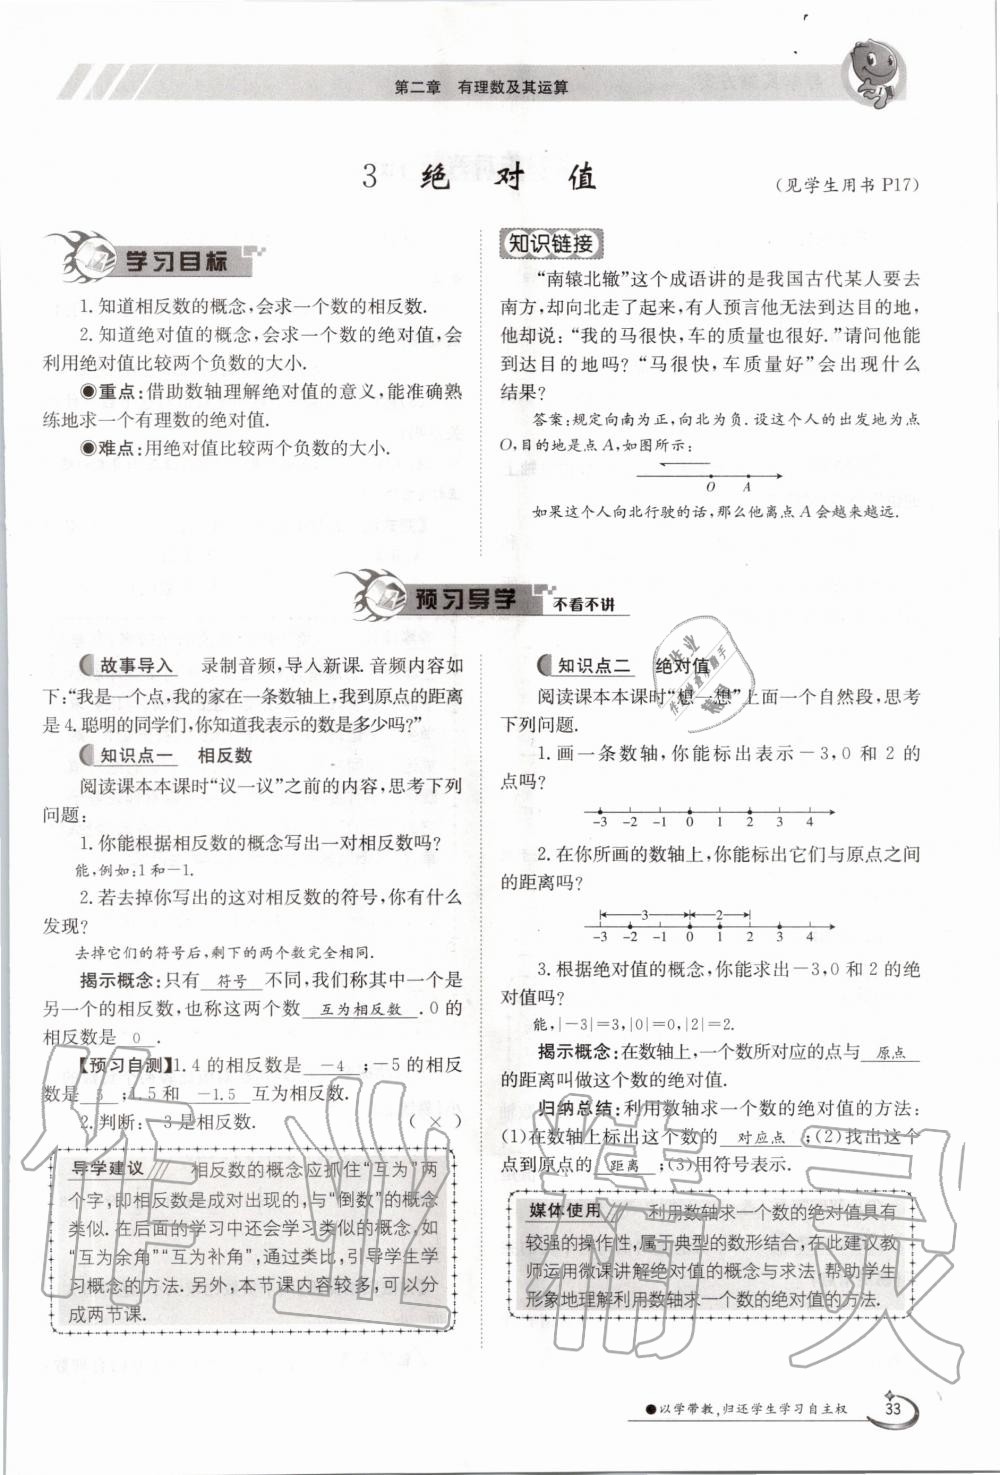 第二章 有理数及其运算
3 绝对值
(见学生用书 P17)
学习目标
1. 知道相反数的概念,会求一个数的相反数.
2. 知道绝对值的概念,会求一个数的绝对值,会
利用绝对值比较两个负数的大小.
●重点:借助数轴理解绝对值的意义,能准确熟
练地求一个有理数的绝对值.
●难点:用绝对值比较两个负数的大小.
知识链接
“南辕北辙”这个成语讲的是我国古代某人要去
南方,却向北走了起来,有人预言他无法到达目的地,
他却说:“我的马很快,车的质量也很好.”请问他能
到达目的地吗?“马很快,车质量好”会出现什么
结果?
答案:规定向南为正,向北为负.设这个人的出发地为点
O,目的地是点 A,如图所示:
O A
如果这个人向北行驶的话,那么他离点 A 会越来越远.
预习导学 不看不讲
故事导入 录制音频,导入新课.音频内容如
下:“我是一个点,我的家在一条数轴上,我到原点的距离
是 4.聪明的同学们,你知道我表示的数是多少吗?”
知识点一 相反数
阅读课本本课时“议一议”之前的内容,思考下列
问题:
1. 你能根据相反数的概念写出一对相反数吗?
能,例如:1 和-1.
2. 若去掉你写出的这对相反数的符号,你有什么
发现?
去掉它们的符号后,剩下的两个数完全相同.
揭示概念:只有 符号 不同,我们称其中一个是
另一个的相反数,也称这两个数 互为相反数 .0 的
相反数是 0 .
【预习自测】1. 4 的相反数是 -4 ;-5 的相反
数是 5 ;1.5 和 -1.5 互为相反数.
2. 判断:-3 是相反数. ( × )
导学建议 相反数的概念应抓住“互为”两
个字,即相反数是成对出现的,与“倒数”的概念
类似.在后面的学习中还会学习类似的概念,如
“互为余角”“互为补角”,通过类比,引导学生学
习概念的方法.另外,本节课内容较多,可以分
成两节课.
知识点二 绝对值
阅读课本本课时“想一想”上面一个自然段,思考
下列问题.
1. 画一条数轴,你能标出表示-3,0 和 2 的
点吗?
-3 -2 -1 0 1 2 3 4
2. 在你所画的数轴上,你能标出它们与原点之间
的距离吗?
3 2
-3 -2 -1 0 1 2 3 4
3. 根据绝对值的概念,你能求出-3,0 和 2 的绝
对值吗?
能,|-3|=3,|0|=0,|2|=2.
揭示概念:在数轴上,一个数所对应的点与 原点
的距离叫做这个数的绝对值.
归纳总结:利用数轴求一个数的绝对值的方法:
(1)在数轴上标出这个数的 对应点 ;(2)找出这个
点到原点的 距离 ;(3)用符号表示.
媒体使用 利用数轴求一个数的绝对值具有
较强的操作性,属于典型的数形结合,在此建议教
师运用微课讲解绝对值的概念与求法,帮助学生
形象地理解利用数轴求一个数的绝对值的方法.
●以学带教,归还学生学习自主权
33
作业精灵